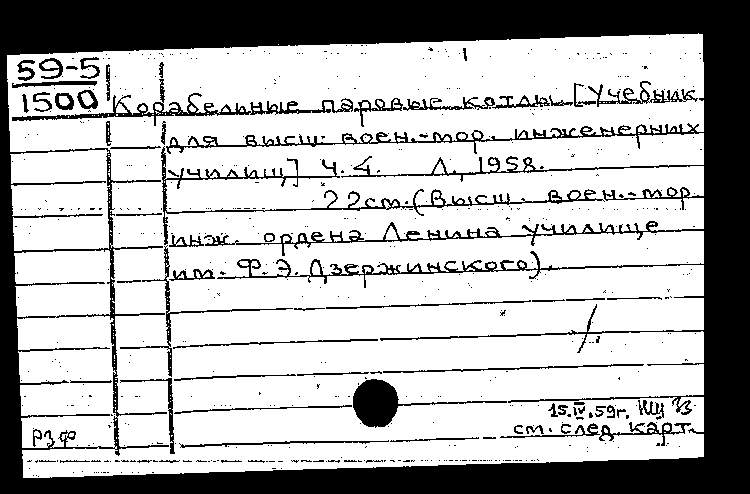 59-5
1500 Корабельные паровые котлы [Учебник
для высш. воен.-мор. инженерных
училищ] Ч. 4. Л., 1958.
22см. (Высш. воен.-мор.
инж. ордена Ленина училище
им. Ф. Э. Дзержинского).
15.IV.59г.
РЗФ
см. след. карт.